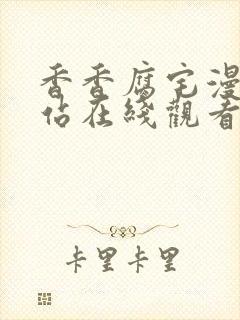 香香腐宅漫
佔在綫觀看
卡里卡里